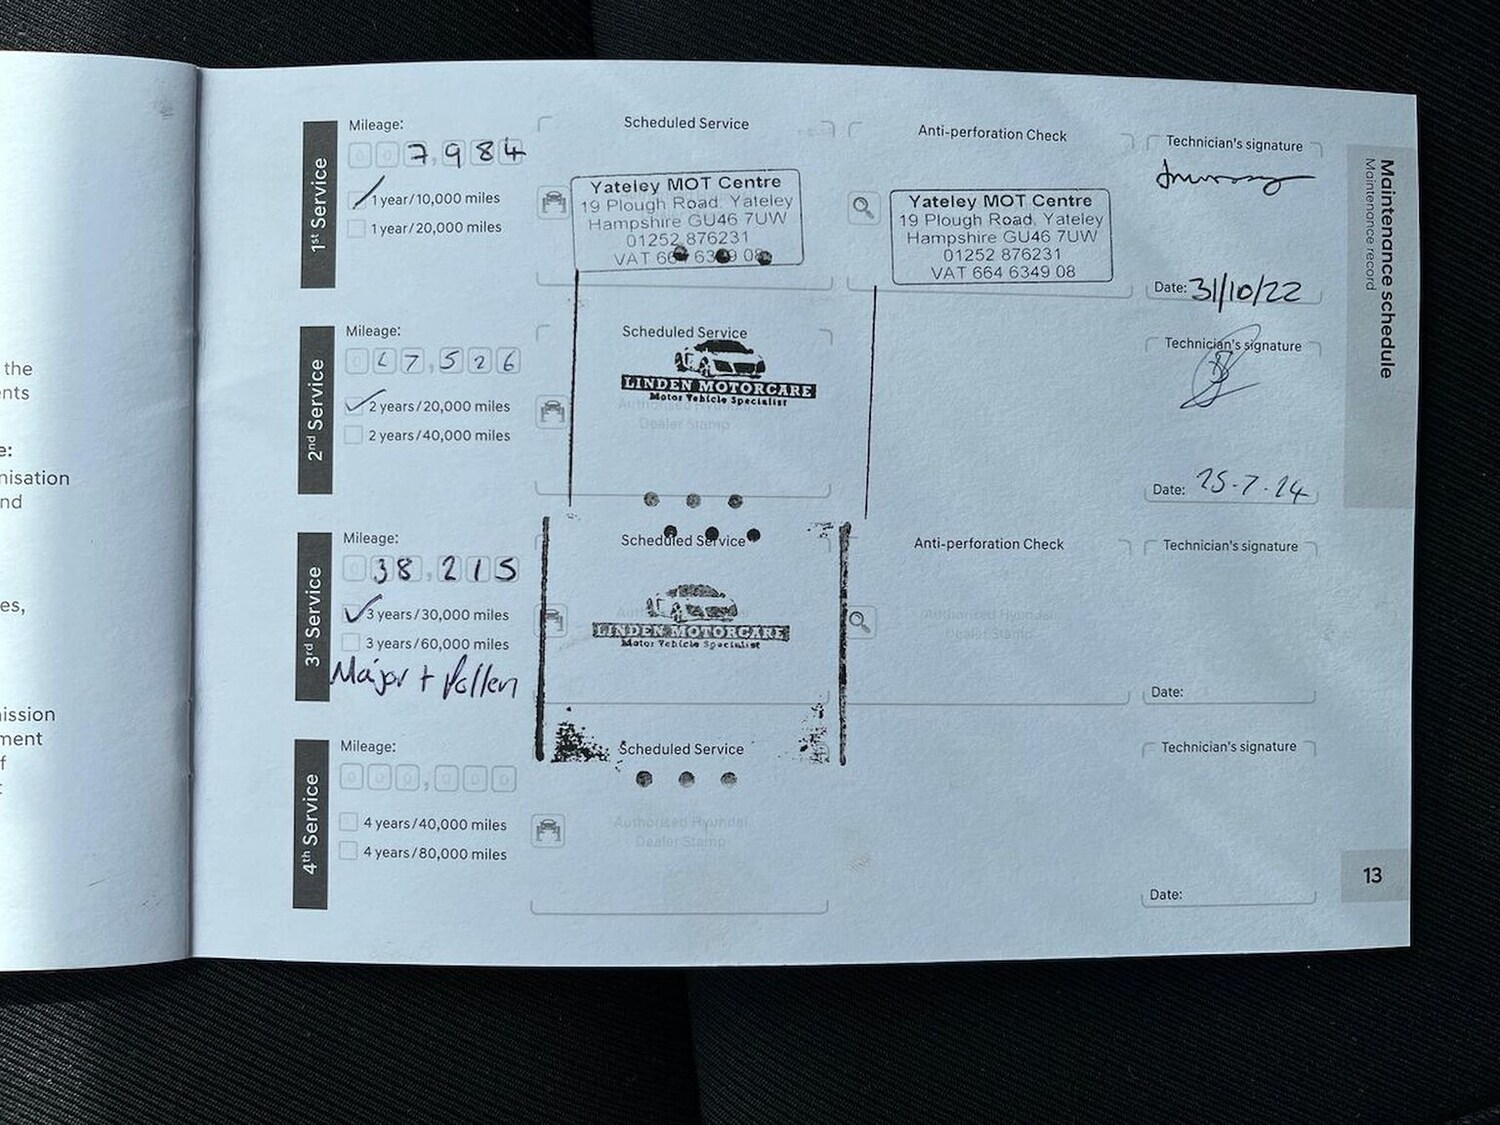 the
nts
e:
nisation
nd
es,
ission
ment
f
Maintenance schedule
Maintenance record
1st Service
Mileage:
007,984
1 year/10,000 miles
1 year/20,000 miles
Scheduled Service
Yateley MOT Centre
19 Plough Road, Yateley
Hampshire GU46 7UW
01252 876231
VAT 664 6349 08
Anti-perforation Check
Yateley MOT Centre
19 Plough Road, Yateley
Hampshire GU46 7UW
01252 876231
VAT 664 6349 08
Technician's signature
Date: 31/10/22
2nd Service
Mileage:
7,526
2 years/20,000 miles
2 years/40,000 miles
Scheduled Service
LINDEN MOTORCARE
Motor Vehicle Specialist
Authorised Hyundai
Dealer Stamp
Technician's signature
Date: 25-7-24
3rd Service
Mileage:
038,215
3 years/30,000 miles
3 years/60,000 miles
Major + Pollen
Scheduled Service
LINDEN MOTORCARE
Motor Vehicle Specialist
Anti-perforation Check
Authorised Hyundai
Dealer Stamp
Technician's signature
Date:
4th Service
Mileage:
000,000
4 years/40,000 miles
4 years/80,000 miles
Scheduled Service
Authorised Hyundai
Dealer Stamp
Technician's signature
Date:
13